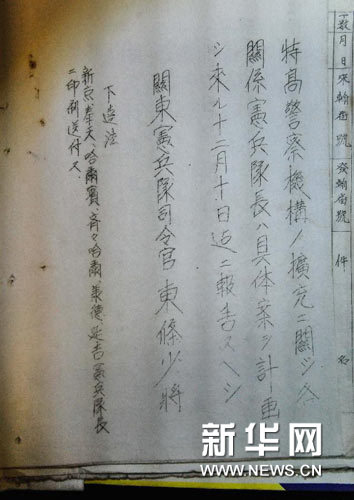 月 日 來翰番號 發翰番號 件 名
特高警察機構ノ擴充ニ關シ各
關係憲兵隊長ハ具体案ヲ計画
シ來ル十二月十日迄ニ報告スヘシ
關東憲兵隊司令官 東條少將
下達法
新京、奉天、哈爾賓、齊々哈爾、承德、延吉憲兵隊長
ニ印刷送付ス、
新华网
WWW.NEWS.CN